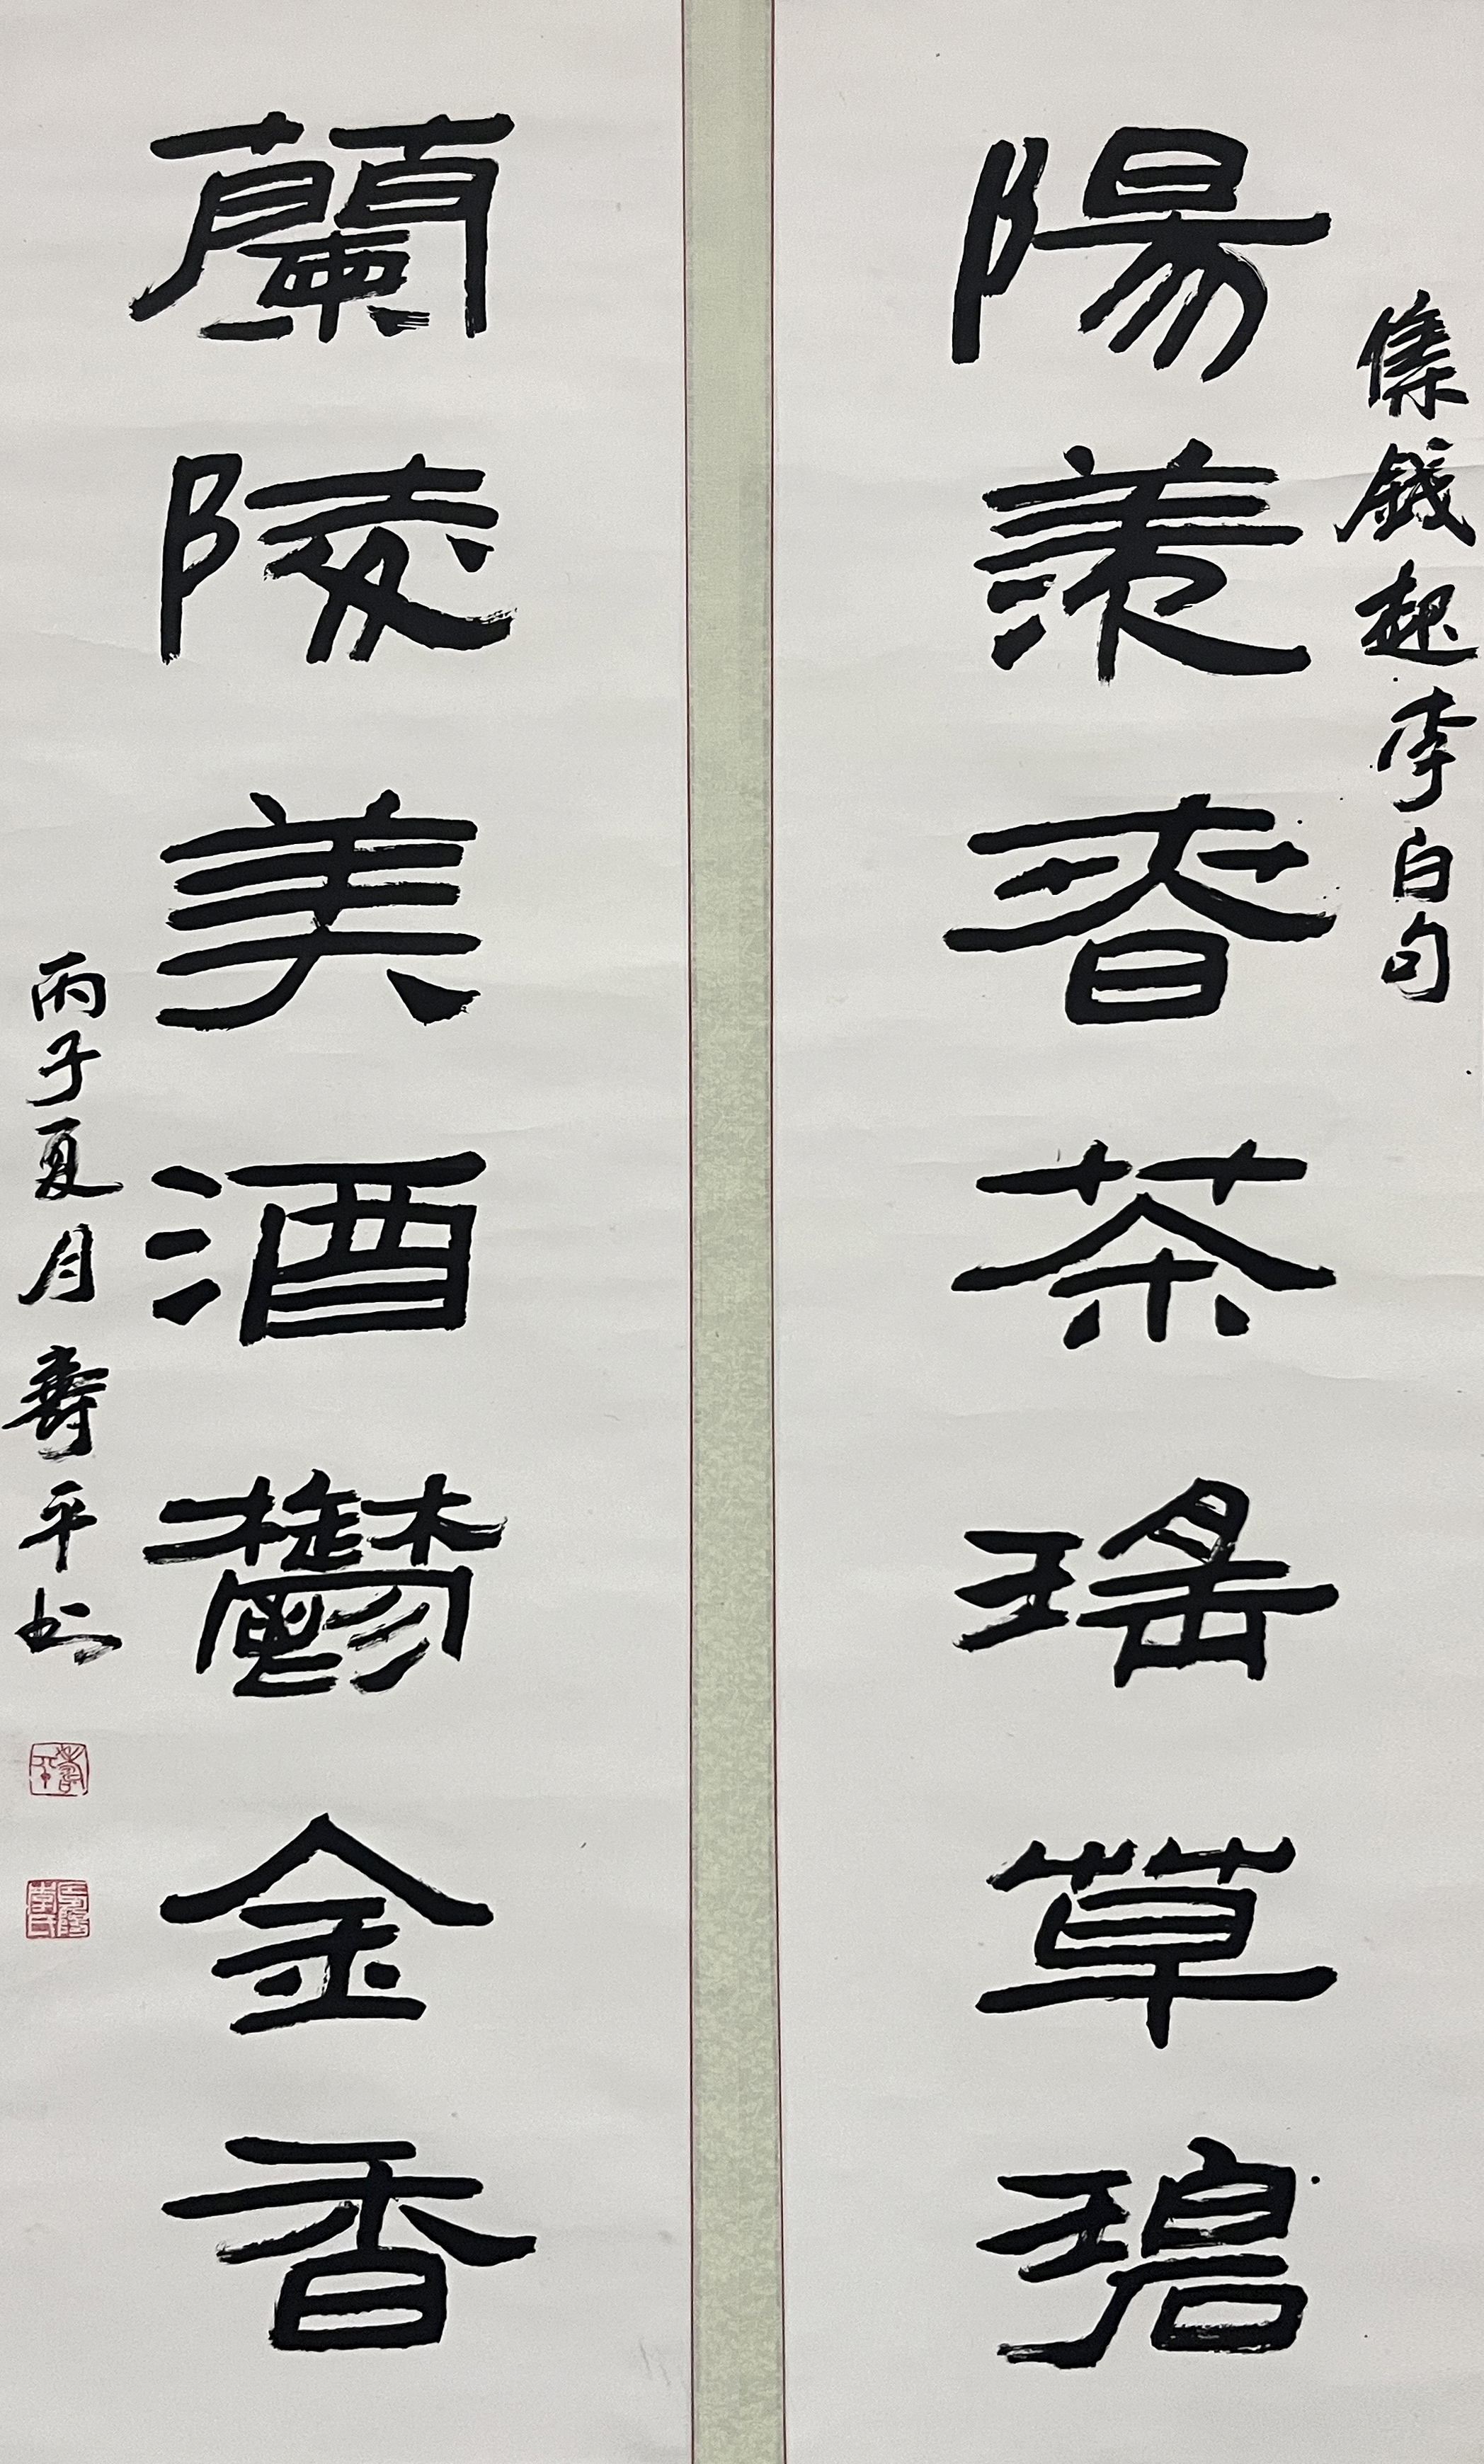 集錢起李白句
陽羨春茶瑤草碧
蘭陵美酒鬱金香
丙子夏月壽平书
壽平